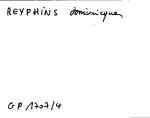 REYPHINS Dominicque
GP 1707/4